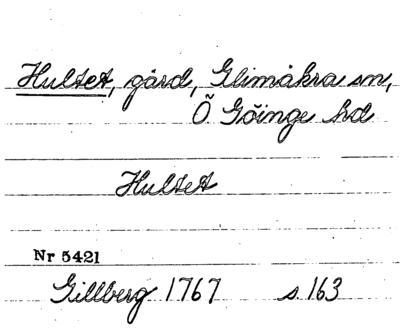 Hultet, gård, Glimåkra sn,
Ö Göinge hd
Hultet
Nr 5421
Gillberg 1767 s. 163